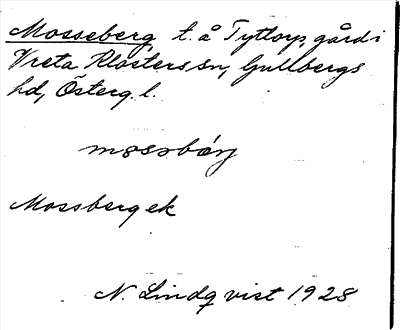 Mosseberg, t. å Tyttorp, gård i
Vreta Klosters sn, Gullbergs
hd, Österg. l.
mɷsəbærj
Mossberg ek
N. Lindqvist 1928